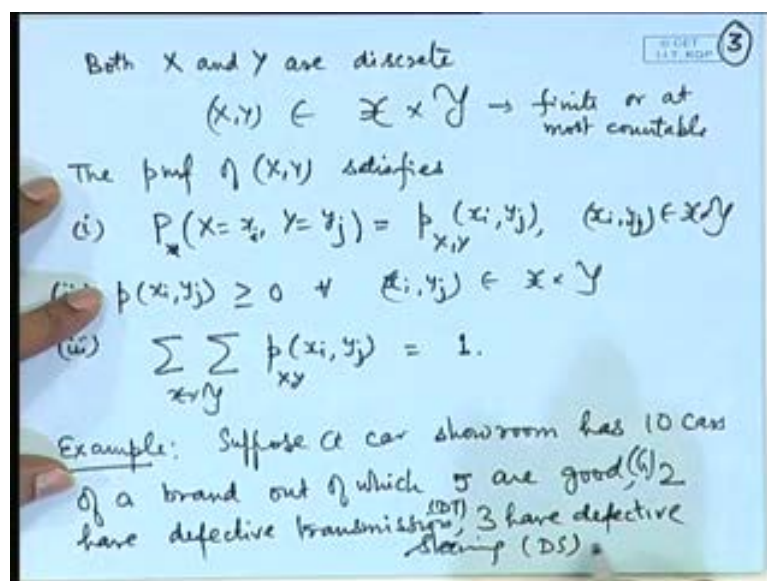 © CET
I.I.T. KGP
3
Both X and Y are discrete
(X,Y) ∈ 𝒳 × 𝒴 → finite or at
most countable
The pmf of (X,Y) satisfies
(i) P(X = xi, Y = yj) = p X,Y (xi, yj), (xi, yj) ∈ 𝒳×𝒴
p(xi, yj) ≥ 0 ∀ (xi, yj) ∈ 𝒳 × 𝒴
(iii) ∑ ∑ p XY (xi, yj) = 1.
𝒳×𝒴
Example: Suppose a car showroom has 10 cars
of a brand out of which 5 are good,(G) 2
have defective transmission,(DT) 3 have defective
steering (DS).